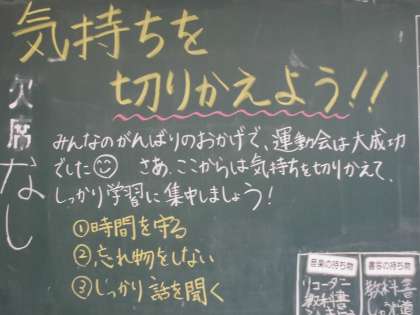 気持ちを
切りかえよう!!
欠席なし
みんなのがんばりのおかげで、運動会は大成功
でした☺ さあ、ここからは気持ちを切りかえて、
しっかり学習に集中しましょう!
①時間を守る
②忘れ物をしない
③しっかり話を聞く
音楽の持ち物
リコーダー
教科書
書写の持ち物
教科書